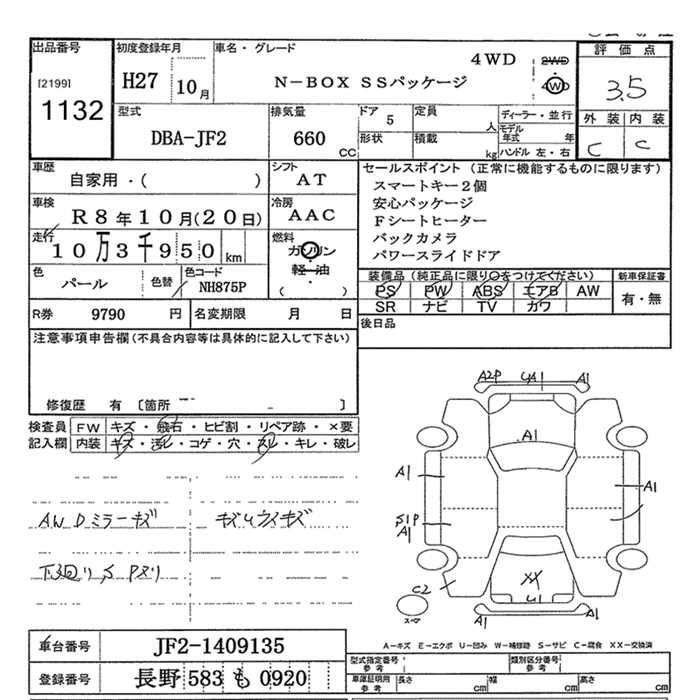 出品番号
[2199]
1132
初度登録年月
H27 10月
車名・グレード
4WD
N-BOX SSパッケージ
2WD
4WD
評価点
3.5
外装 内装
C C
型式
DBA-JF2
排気量
660 CC
ドア 5
形状
定員 人
積載 kg
ディーラー・並行
モデル年式 年
ハンドル 左・右
車歴
自家用・( )
シフト
AT
車検
R8年10月(20日)
冷房
AAC
走行
10万3千950km
燃料
ガソリン
軽・油
・
( )
色
パール
色替
色コード
NH875P
R券 9790 円
名変期限 月 日
セールスポイント (正常に機能するものに限ります)
スマートキー2個
安心パッケージ
Fシートヒーター
バックカメラ
パワースライドドア
装備品(純正品に限り○をつけてください)
PS PW ABS エアB AW
SR ナビ TV カワ
新車保証書
有・無
後日品
注意事項申告欄(不具合内容等は具体的に記入して下さい)
修復歴 有 〔箇所 〕
検査員
記入欄
FW キズ・飛石・ヒビ割・リペア跡・×要
内装 キズ・汚レ・コゲ・穴・スレ・キレ・破レ
AW Dミラーキズ
キズウライキズ
下廻リS Pヌリ
A2P
U41
A1
A1
A1
A1
S1P
A1
A1
C2
XX
U1
A1
A1
スペア
A-キズ E-エクボ U-凹み W-補修跡 S-サビ C-腐食 XX-交換済
車台番号 JF2-1409135
登録番号 長野 583 も 0920
型式指定番号
参考
類別区分番号
参考
車庫証明用
参考
長さ cm
幅 cm
高さ cm